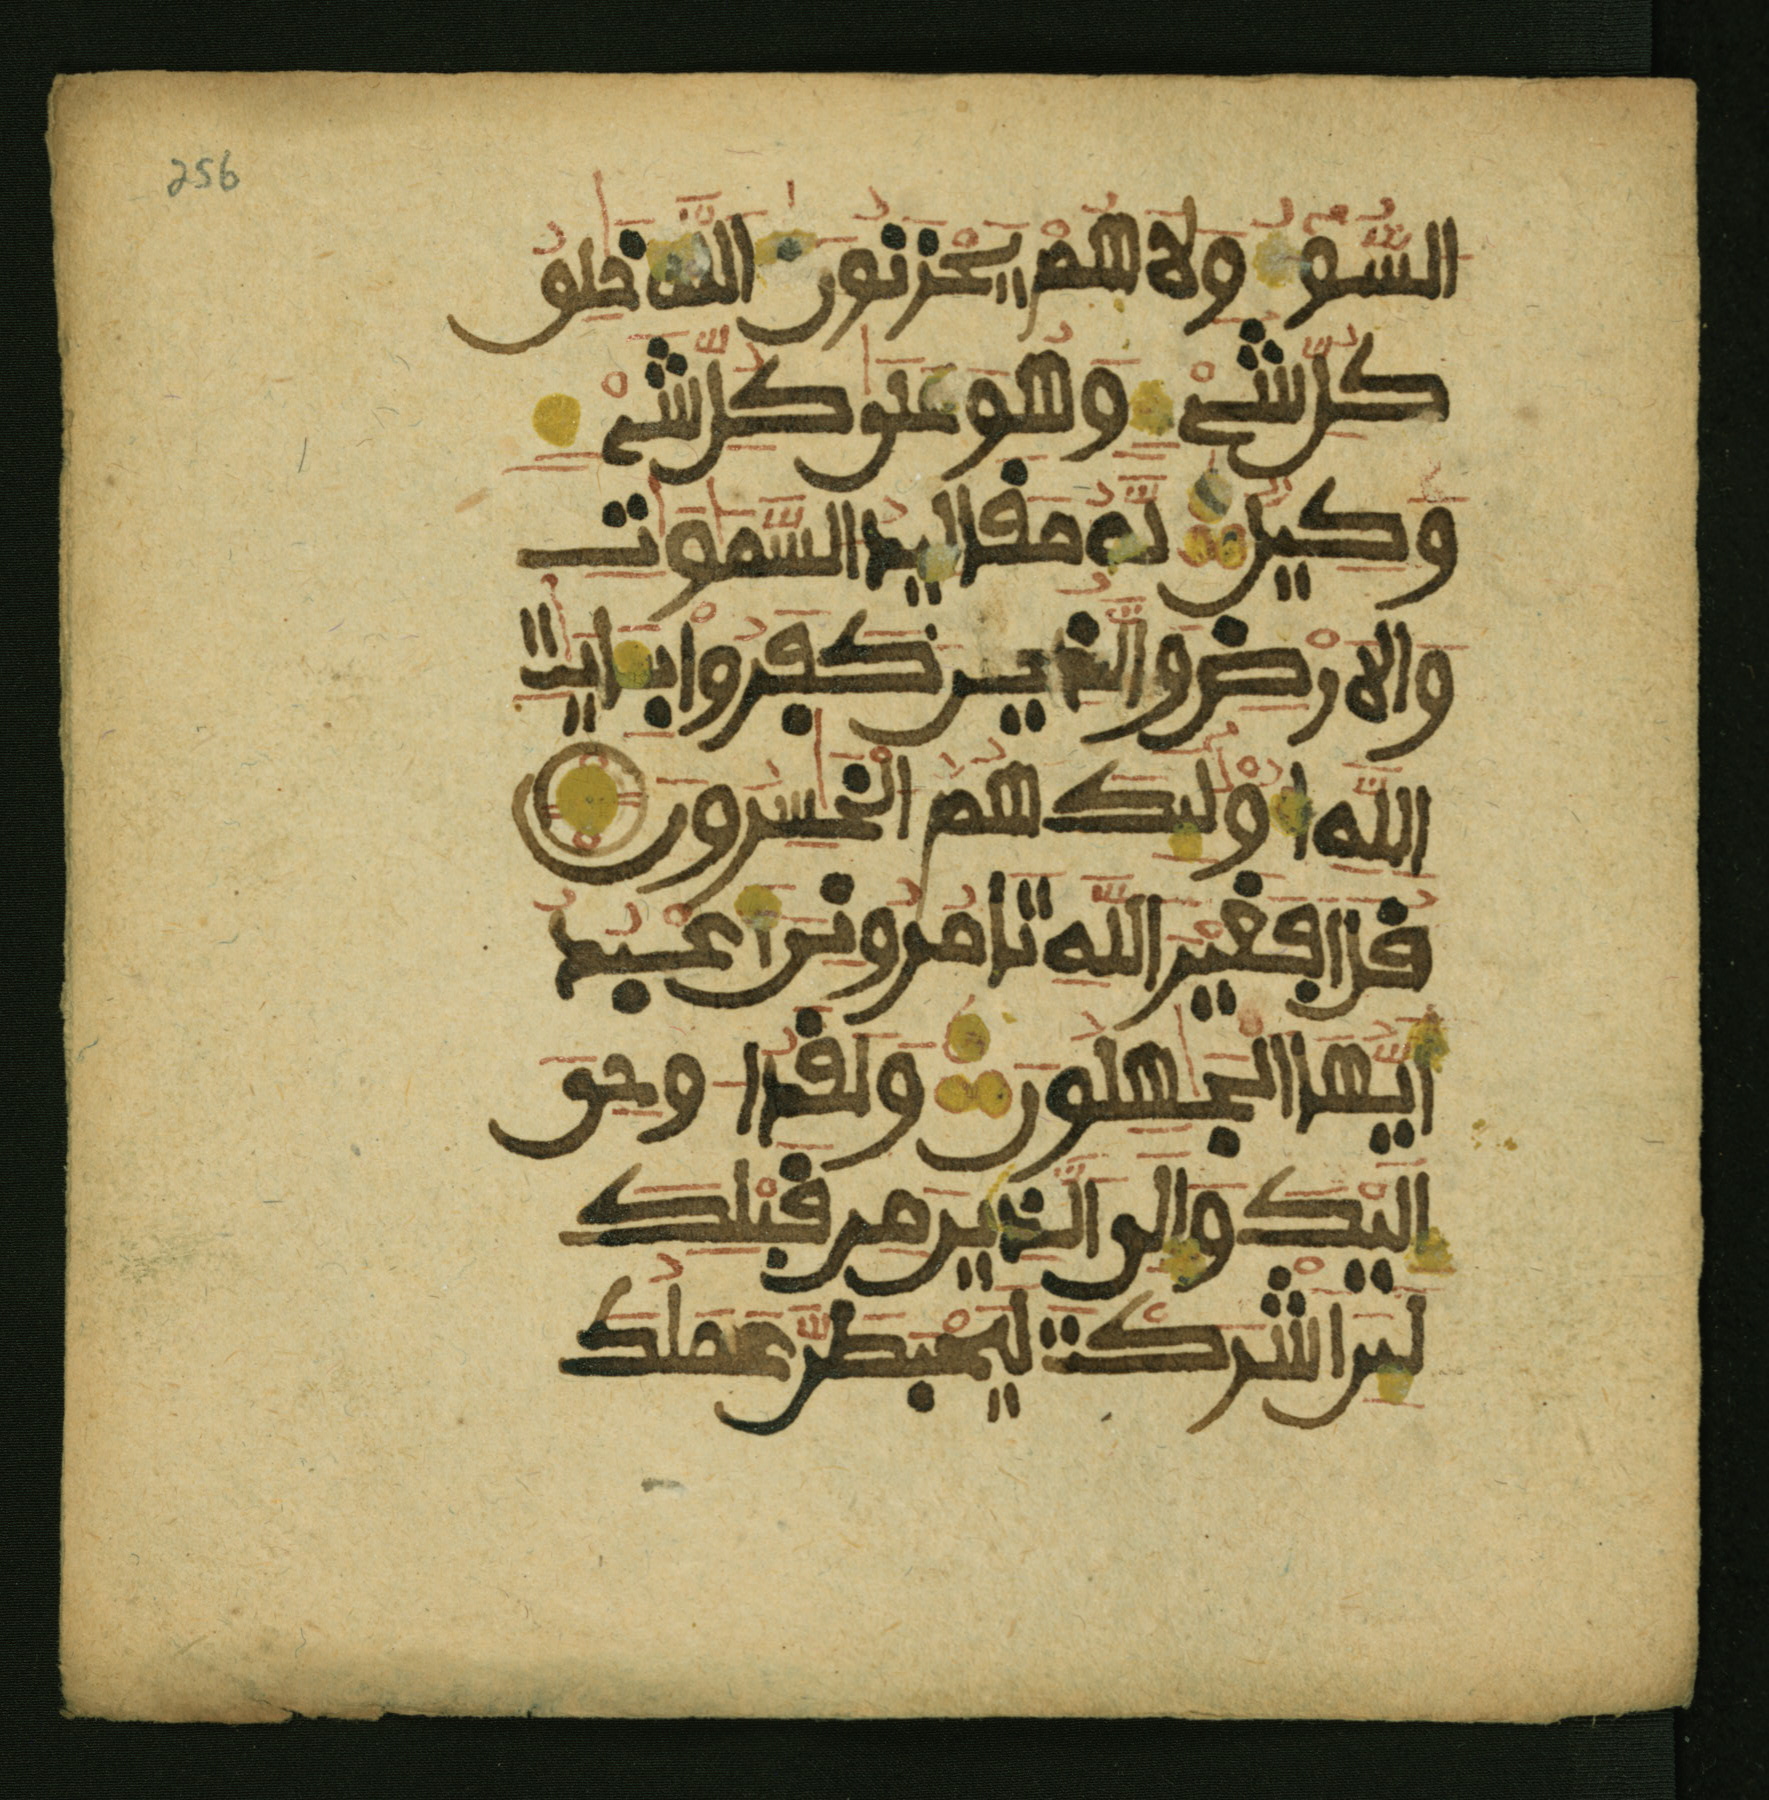 256
السُّوءُ وَلَا هُمْ يَحْزَنُونَ اللَّهُ خَٰلِقُ
كُلِّ شَيْءٍ وَهُوَ عَلَىٰ كُلِّ شَيْءٍ
وَكِيلٌ لَّهُ مَقَالِيدُ السَّمَٰوَٰتِ
وَالَارْضِ وَالَّذِينَ كَفَرُواْ بِـَٔايَٰتِ
اللَّهِ أُوْلَٰئِكَ هُمُ الْخَٰسِرُونَ
قُلَ اَفَغَيْرَ اللَّهِ تَامُرُونِيَ أَعْبُدُ
أَيُّهَا الْجَٰهِلُونَ وَلَقَدُ اوحِيَ
إِلَيْكَ وَإِلَى الَّذِينَ مِن قَبْلِكَ
لَئِنَ اشْرَكْتَ لَيَحْبَطَنَّ عَمَلُكَ